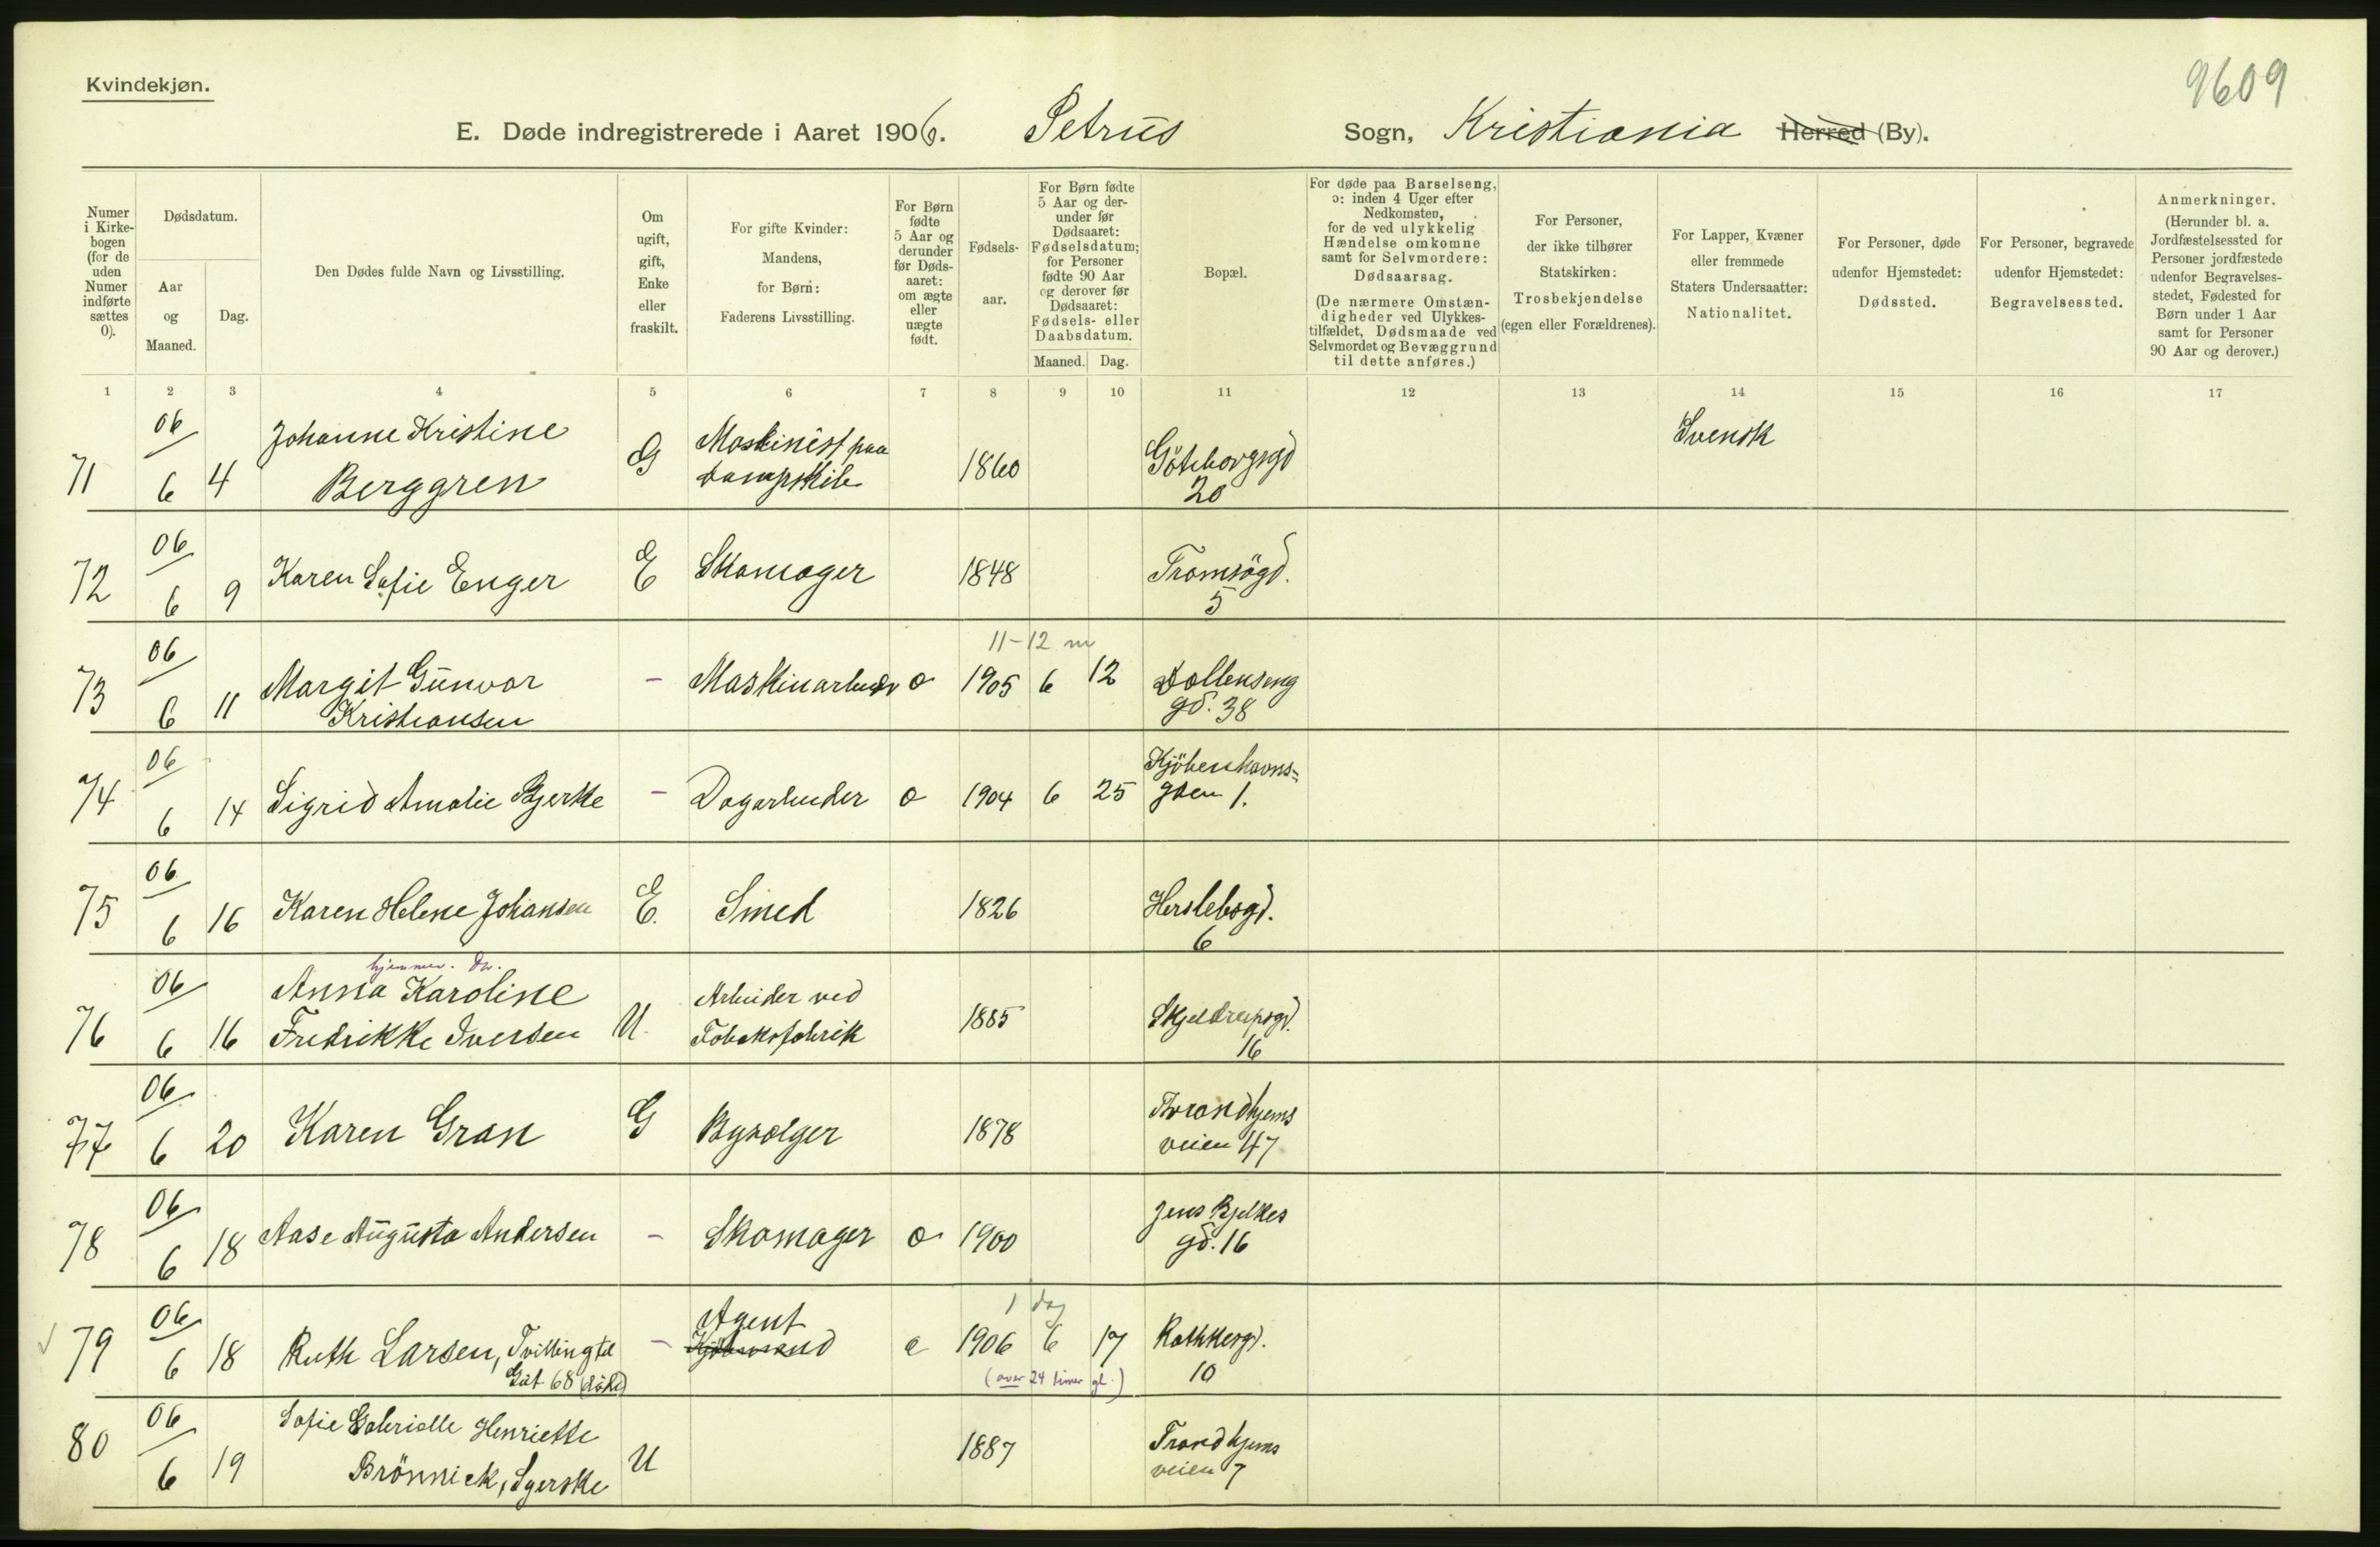 Kvindekjøn.
9609
E. Døde indregistrerede i Aaret 1906. Petrus Sogn, Kristiania Herred (By).
Numer i Kirkebogen (for de uden Numer indførte sættes 0).
Dødsdatum.
Aar og Maaned.
Dag.
Den Dødes fulde Navn og Livsstilling.
Om ugift, gift, Enke eller fraskilt.
For gifte Kvinder: Mandens, for Børn: Faderens Livsstilling.
For Børn fødte 5 Aar og derunder før Dødsaaret: om ægte eller uægte født.
Fødselsaar.
For Børn fødte 5 Aar og derunder før Dødsaaret: Fødselsdatum; for Personer fødte 90 Aar og derover før Dødsaaret: Fødsels- eller Daabsdatum.
Maaned. Dag.
Bopæl.
For døde paa Barselseng, ɔ: inden 4 Uger efter Nedkomsten, for de ved ulykkelig Hændelse omkomne samt for Selvmordere: Dødsaarsag.
(De nærmere Omstændigheder ved Ulykkestilfældet, Dødsmaade ved Selvmordet og Bevæggrund til dette anføres.)
For Personer, der ikke tilhører Statskirken: Trosbekjendelse (egen eller Forældrenes).
For Lapper, Kvæner eller fremmede Staters Undersaatter: Nationalitet.
For Personer, døde udenfor Hjemstedet: Dødssted.
For Personer, begravede udenfor Hjemstedet: Begravelsessted.
Anmerkninger.
(Herunder bl. a. Jordfæstelsessted for Personer jordfæstede udenfor Begravelsesstedet, Fødested for Børn under 1 Aar samt for Personer 90 Aar og derover.)
1 2 3 4 5 6 7 8 9 10 11 12 13 14 15 16 17
71 06/6 4 Johanne Kristine Berggren G Maskinist paa Dampskib 1860 Göteborgsgd 20 Svensk
72 06/6 9 Karen Sofie Enger E Skomager 1848 Tromsögd. 5
11-12 m
73 06/6 11 Margit Gunvor Kristiansen - Maskinarbeider 1905 6 12 gd. 38
74 06/6 14 Sigrid Amalie Bjerke - Dagarbeider 1904 6 25 Kjöbenhavns= gden 1.
75 06/6 16 Karen Helene Johansen E. Smed 1826 Herslebsgd. 6
76 06/6 16 Anna Karoline Fredrikke Iversen U. Arbeider ved Tobaksfabrik 1885 16
77 06/6 20 Karen Gran G Bysælger 1878 Trondhjems veien 47
78 06/6 18 Aase Augusta Andersen - Skomager 1900 Jens Bjelkes gd. 16
1 dag
79 06/6 18 Ruth Larsen, Tvilling til 68 - Agent 1906 6 17 Rathkesgd. 10
(over 24 timer gl.)
80 06/6 19 Sofie Gabrielle Henriette Brönnick, Syerske U 1887 Trondhjems veien 7